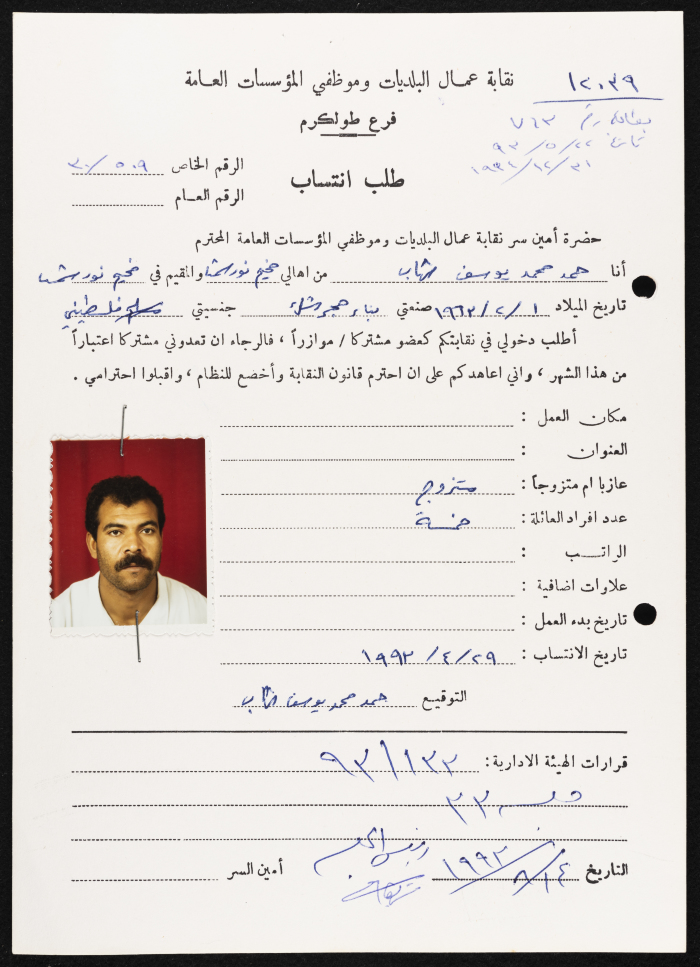 نقابة عمال البلديات وموظفي المؤسسات العامة
١٢٠٣٩
فرع طولكرم
بطاقة رقم ٧٦٣
تاريخ ٩٣/٥/٢٢
١٩٩٤/١٢/٣١
الرقم الخاص ٣٠/٥٠٩
الرقم العام
طلب انتساب
حضرة أمين سر نقابة عمال البلديات وموظفي المؤسسات العامة المحترم
أنا حمد محمد يوسف من اهالي مخيم نور شمس والمقيم في مخيم نور شمس
تاريخ الميلاد ١/٢/١٩٦٣ صنعتي بناء حجر جنسيتي فلسطيني
أطلب دخولي في نقابتكم كعضو مشتركا / موازراً ، فالرجاء ان تعدوني مشتركا اعتباراً
من هذا الشهر ، واني اعاهدكم على ان احترم قانون النقابة وأخضع للنظام ، واقبلوا احترامي .
مكان العمل :
العنوان :
عازبا ام متزوجاً : متزوج
عدد افراد العائلة : خمسة
الراتب :
علاوات اضافية :
تاريخ بدء العمل :
تاريخ الانتساب : ٢٩/٤/١٩٩٣
التوقيع حمد محمد يوسف
قرارات الهيئة الادارية : ٩٣/١٣٣
٣٣
التاريخ ١٩٩٣ أمين السر